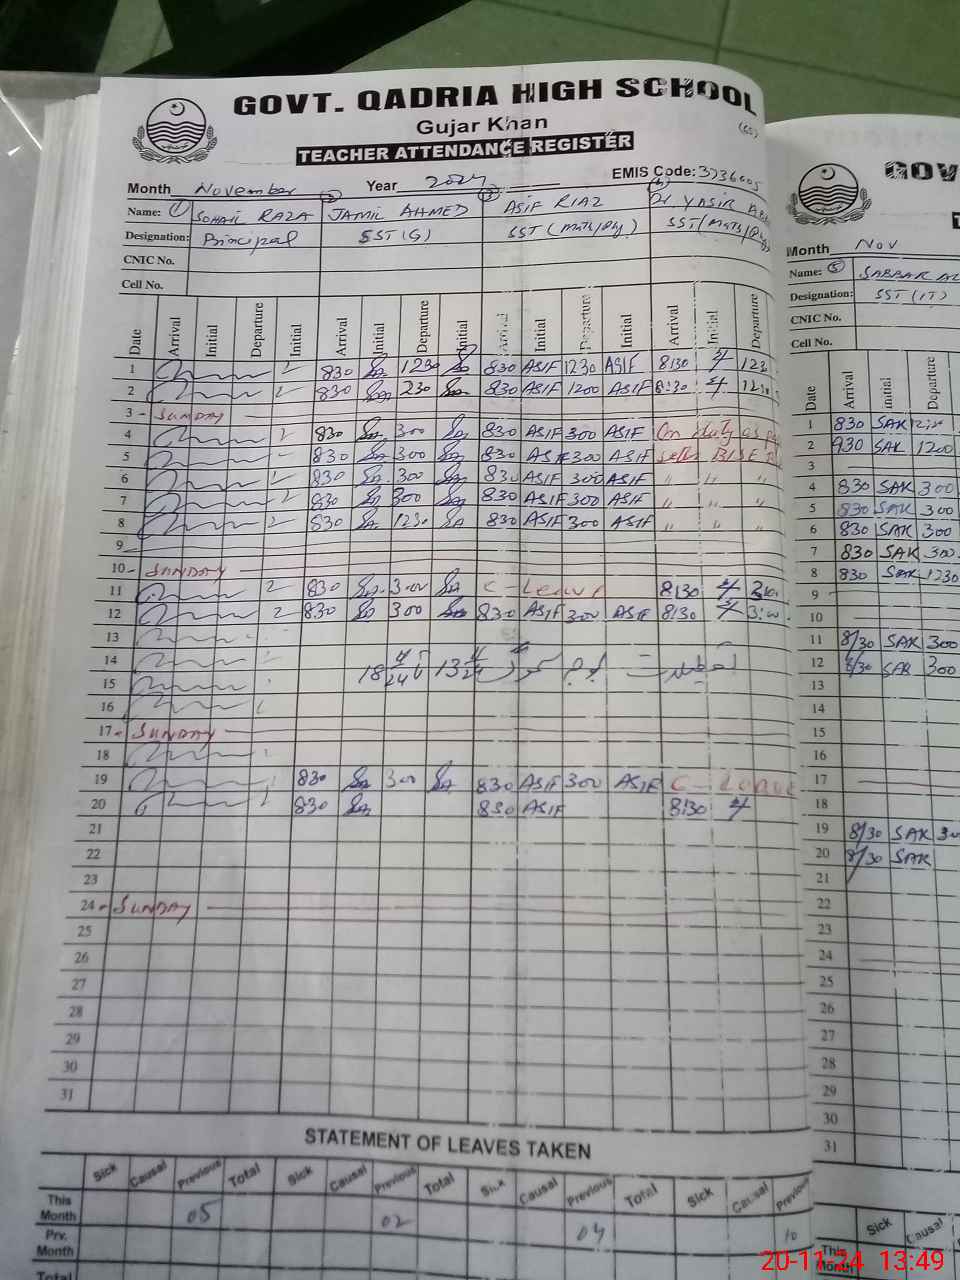 GOVT. QADRIA HIGH SCHOOL
Gujar Khan
TEACHER ATTENDANCE REGISTER
Month November Year 2024 EMIS Code: 3736605
Name: ① SOHAIL RAZA ② JAMIL AHMED ③ ASIF RIAZ ④ Dr. YASIR
Designation: Principal SST(G) SST (Math/Phy) SST (Math/Phy)
CNIC No.
Cell No.
Date Arrival Initial Departure Initial Arrival Initial Departure Initial Arrival Initial Departure Initial Arrival Initial Departure
1 830 1230 830 ASIF 1230 ASIF 8:30 123
2 830 230 830 ASIF 1200 ASIF 8:30
3 - SUNDAY
4 830 300 830 ASIF 300 ASIF On duty as
5 830 300 830 ASIF 300 ASIF BISE
6 830 300 830 ASIF 300 ASIF " " "
7 830 300 830 ASIF 300 ASIF " " "
8 830 1230 830 ASIF 300 ASIF " " "
9
10 - SUNDAY
11 830 300 C - Leave 8:30
12 830 300 830 ASIF 300 ASIF 8:30 3:00
13
14
15
16
17 - SUNDAY
18
19 830 300 830 ASIF 300 ASIF C - Leave
20 830 830 ASIF 8:30
21
22
23
24 - SUNDAY
25
26
27
28
29
30
31
STATEMENT OF LEAVES TAKEN
Sick Causal Previous Total Sick Causal Previous Total Sick Causal Previous Total Sick Causal Previous
This Month 05 02 04 10
Prv. Month
Total
GOV
Month Nov
Name: ⑤
Designation: SST (IT)
CNIC No.
Cell No.
Date Arrival Initial Departure
1 830 SAK
2 930 SAK 1200
3
4 830 SAK 300
5 830 SAK 300
6 830 SAK 300
7 830 SAK 300
8 830 SAK 1230
9
10
11 8/30 SAK 300
12 8/30 SAK 300
13
14
15
16
17
18
19 8/30 SAK
20 8/30 SAK
21
22
23
24
25
26
27
28
29
30
31
Sick Causal
This Month
20-11-24 13:49